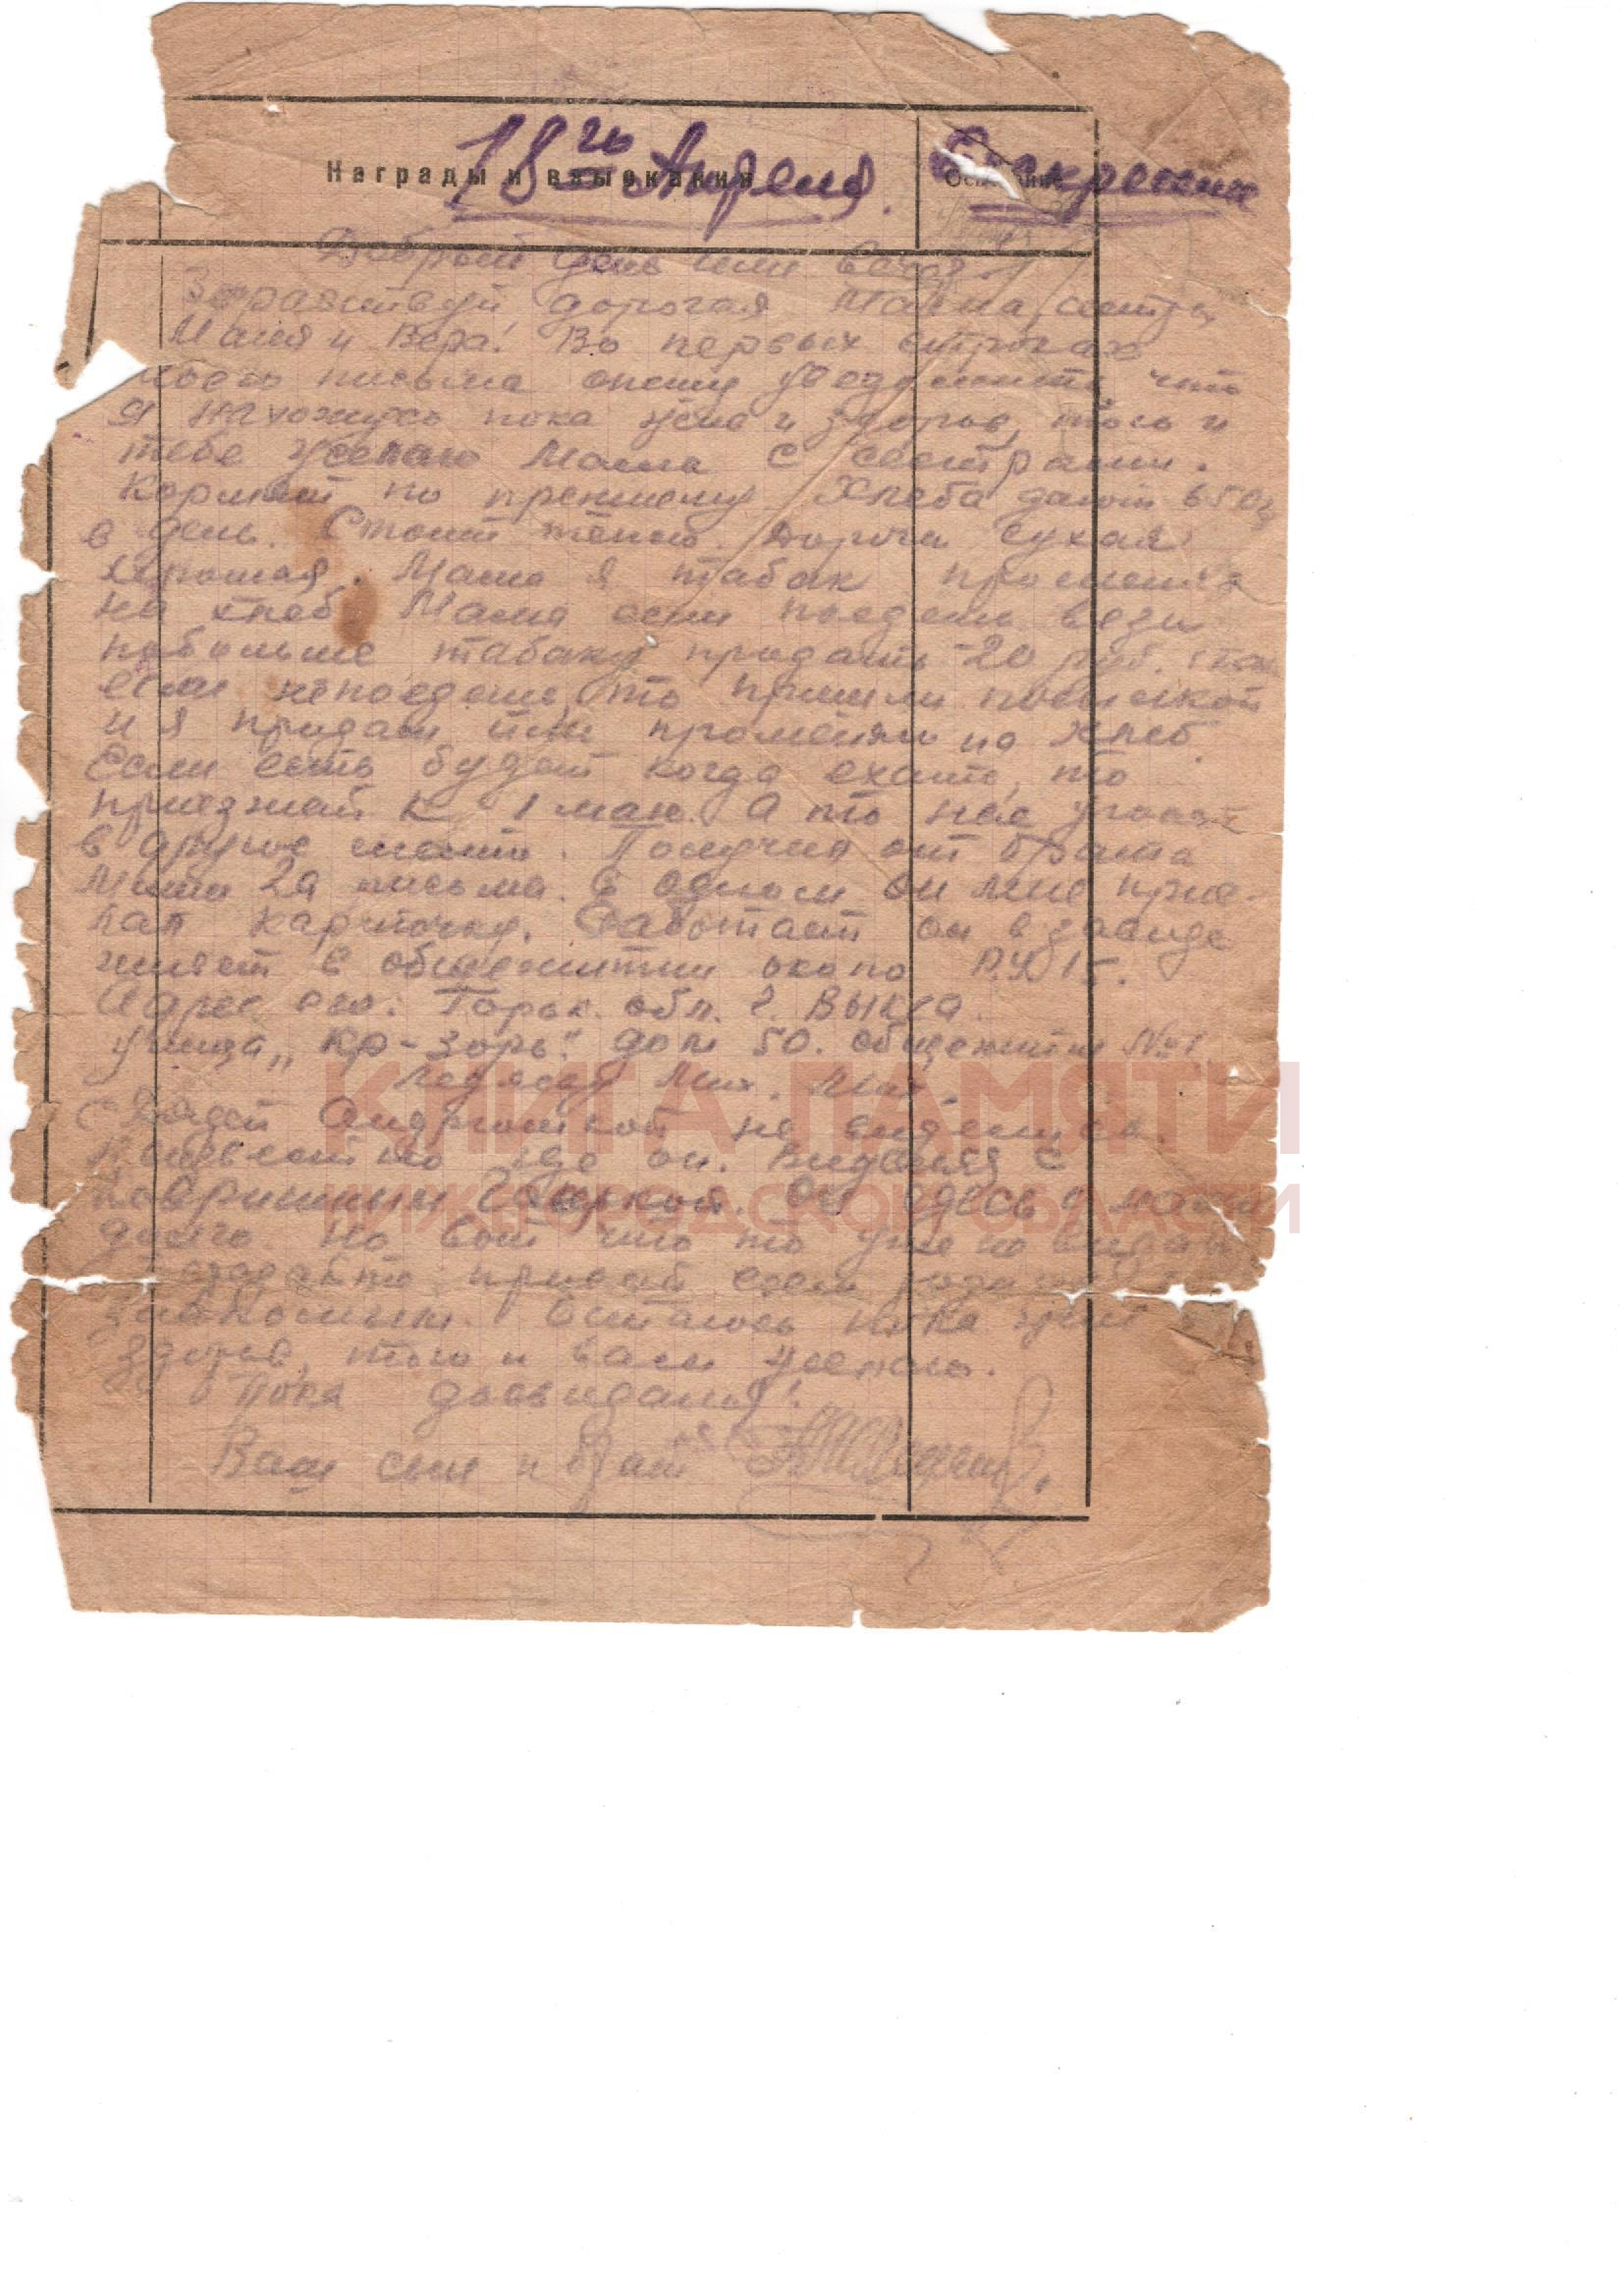 18го Апреля. Воскресение
Награды и взыскания
Добрый день или вечер
Здравствуй, дорогая мама, сестры
Маня и Вера! Во первых строках
моего письма спешу уведомить что
я нахожусь пока жив и здоров, того и
тебе желаю Мама с сестрами.
Кормят по прежнему. Хлеба дают 650г
в день. Стоит тепло. Дорога сухая
хорошая. Мама я табак променял
на хлеб. Мама если поедешь вези
побольше табаку продать 20 руб. стак
если непоедешь, то пришли посылкой
и я продам или променяю на хлеб.
Если есть будет когда ехать, то
приезжай к 1 маю. А то нас угонят
в другое место. Получил от брата
Миши 2а письма. В одном он мне прис-
лал карточку. Работает он в заводе
живет в общежитии около Р.У. 15.
Адрес его: Горьк. обл. г. Выкса
улица „Кр-зорь" дом 50. общежитие №1
Мих.
С дядей Андрюшкой не виделись.
Неизвестно где он. Виделся с
он здесь с нами
долго. Но вот что то уже не видать
Передайте привет всем родным и
знакомым. Остаюсь пока жив и
здоров, того и вам желаю.
Пока досвидания!
Ваш сын и брат
КНИГА ПАМЯТИ
НИЖЕГОРОДСКОЙ ОБЛАСТИ